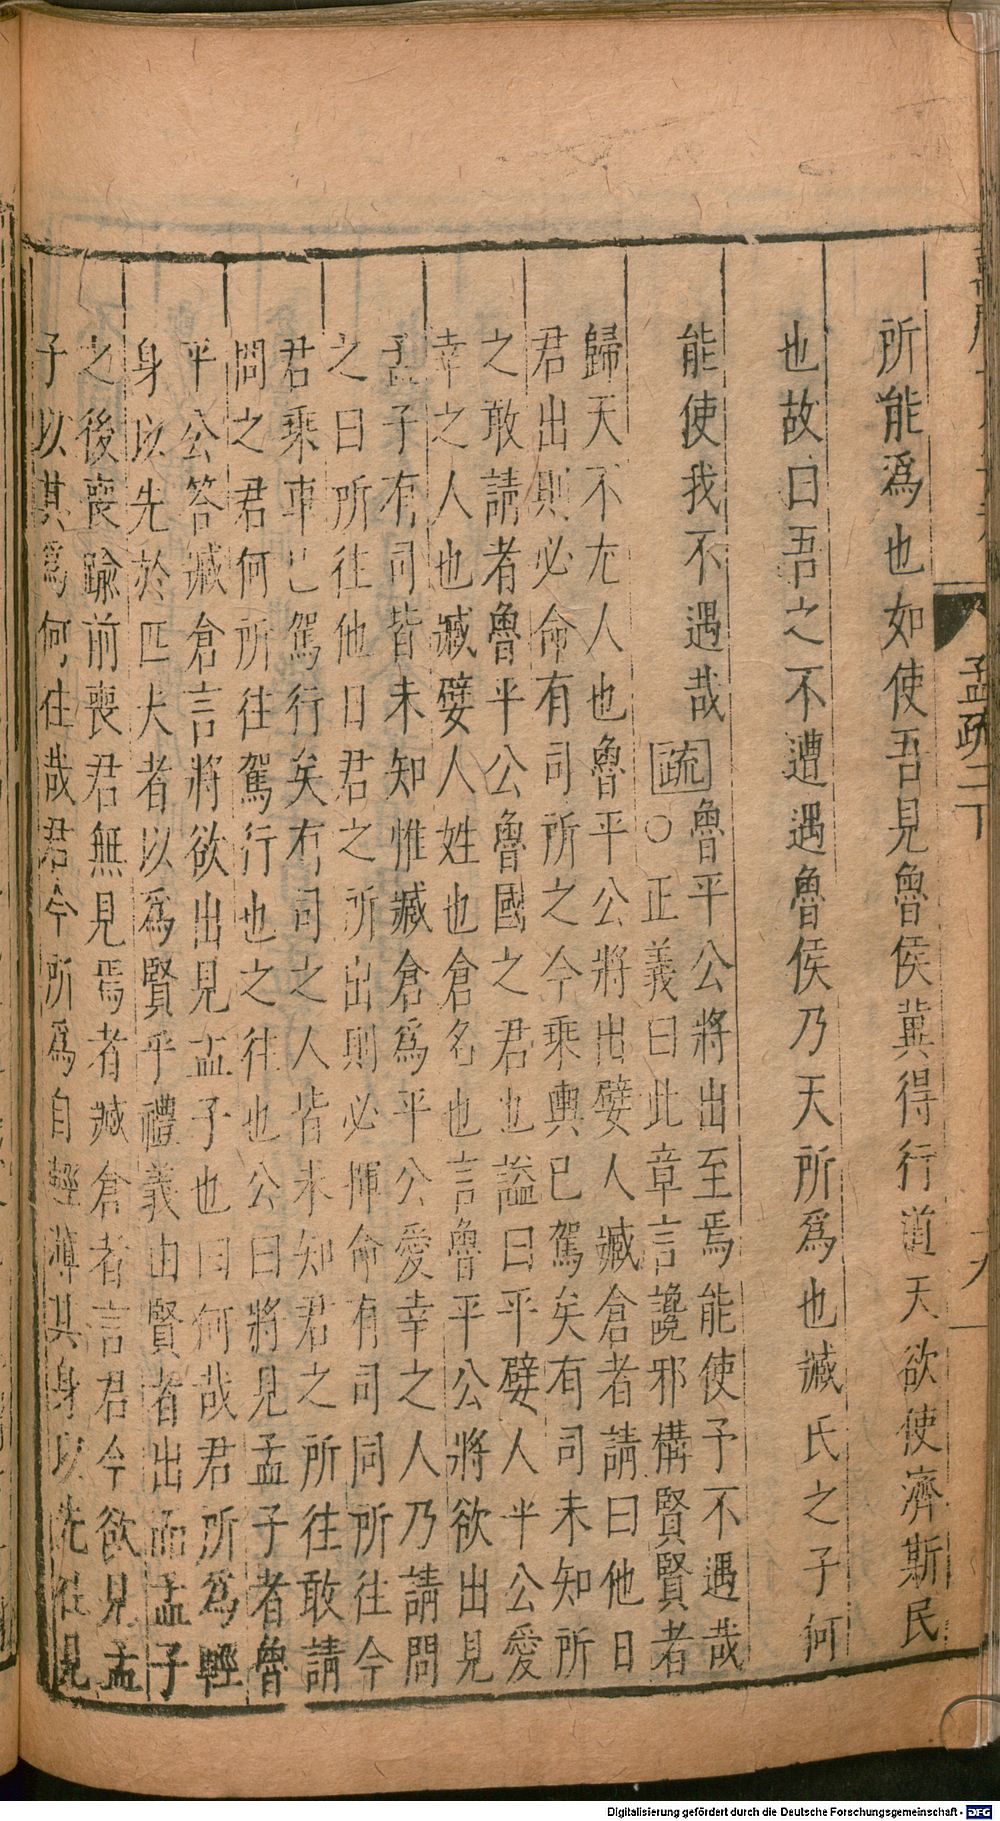 孟疏二下
所能爲也如使吾見魯侯冀得行道天欲使濟斯民
也故曰吾之不遭遇魯侯乃天所爲也臧氏之子何
能使我不遇哉疏魯平公將出至焉能使予不遇哉
○正義曰此章言讒邪構賢賢者
歸天不尤人也魯平公將出嬖人臧倉者請曰他日
君出則必命有司所之今乘輿已駕矣有司未知所
之敢請者魯平公魯國之君也謚曰平嬖人平公愛
幸之人也臧嬖人姓也倉名也言魯平公將欲出見
孟子有司皆未知惟臧倉爲平公愛幸之人乃請問
之曰所往他日君之所出則必揮命有司同所往今
君乘車已駕行矣有司之人皆未知君之所往敢請
問之君何所往駕行也之往也公曰將見孟子者魯
平公答臧倉言將欲出見孟子也曰何哉君所爲輕
身以先於匹夫者以爲賢乎禮義由賢者出而孟子
之後喪踰前喪君無見焉者臧倉者言君今欲見孟
子以其爲何往哉君今所爲自輕薄其身以先往見
Digitalisierung gefördert durch die Deutsche Forschungsgemeinschaft - DFG